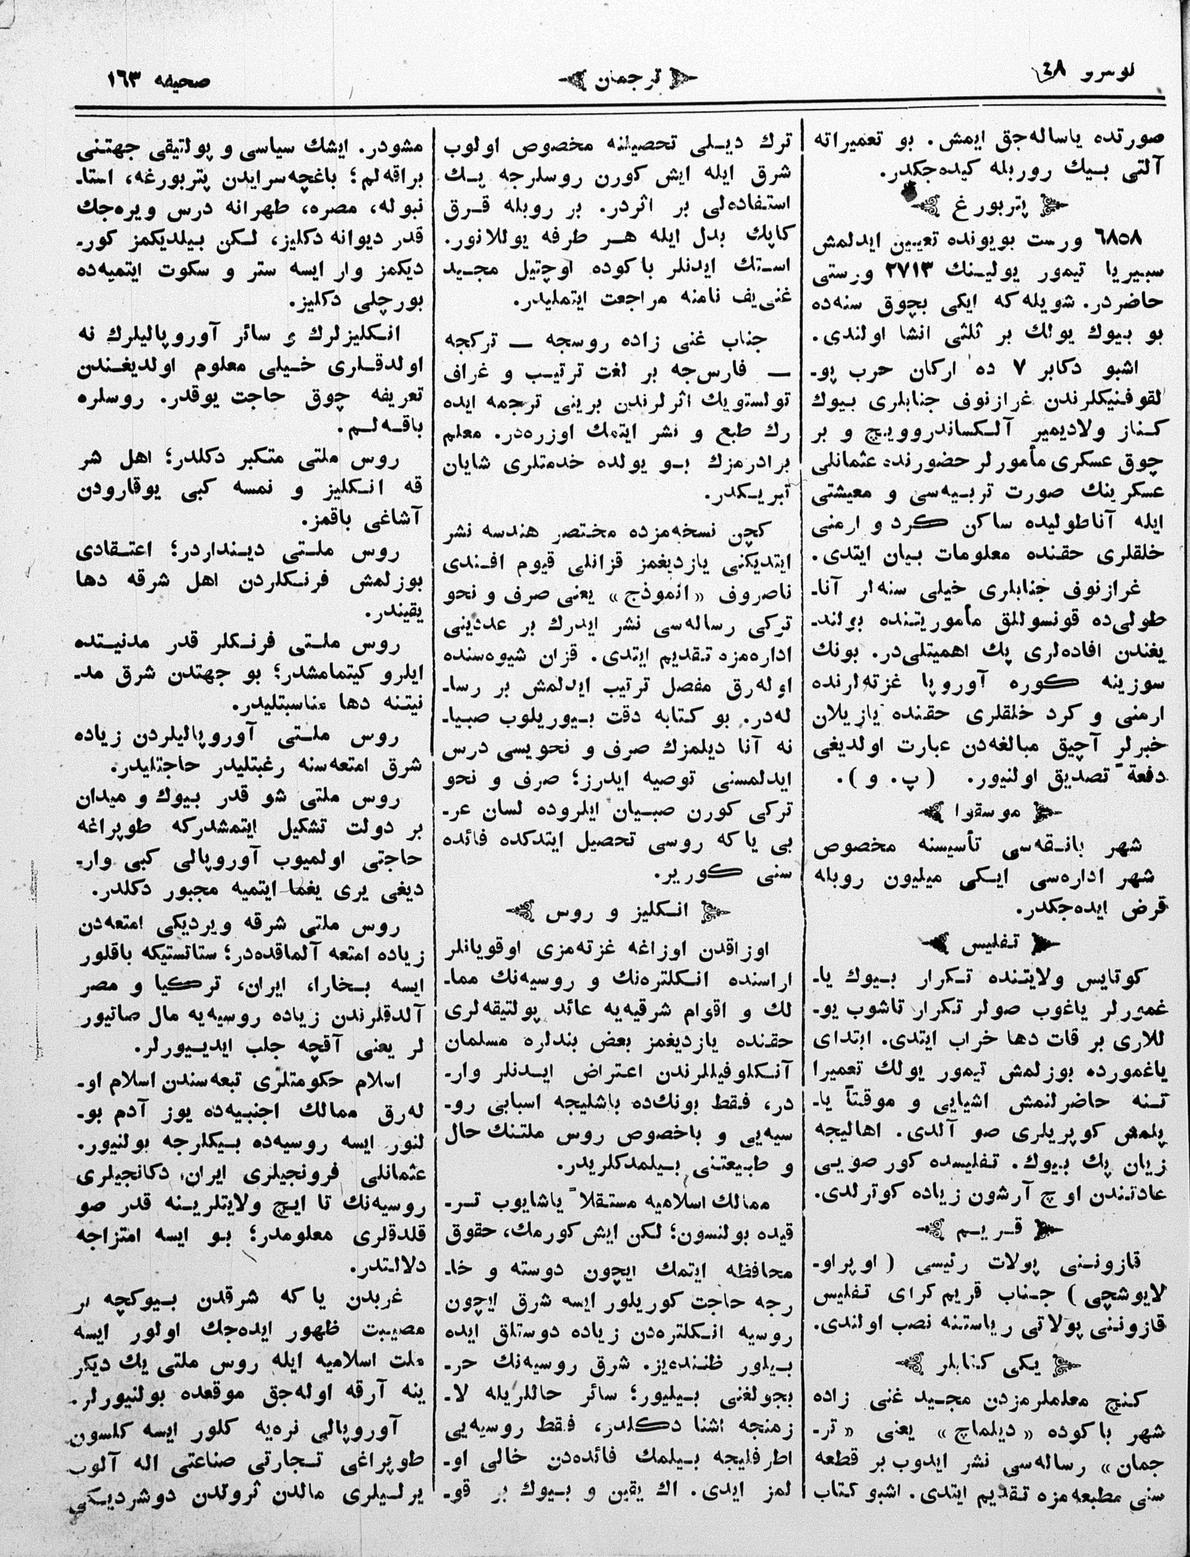 نومرو ٤٨
ترجمان
صحیفه ١٦٣
صورتده یاساله‌جق ایمش. بو تعمیراته
آلتی بیك روربله کیده‌جکدر.
پتربورغ
٦٨٥٨ ورست بویونده تعیین ایدلمش
سبیریا تیمور یولینك ٢٧١٣ ورستی
حاضردر. شویله‌که ایکی بچوق سنه‌ده
بو بیوك یولك بر ثلثی انشا اولندی.
اشبو دکابر ٧ ده ارکان حرب پو-
لقوفنیکلرندن غرازنوف جنابلری بیوك
کناز ولادیمیر آلکساندروویچ و بر
چوق عسکری مأمورلر حضورنده عثمانلی
عسکرینك صورت تربیه‌سی و معیشتی
ایله آناطولیده ساکن کرد و ارمنی
خلقلری حقنده معلومات بیان ایتدی.
غرازنوف جنابلری خیلی سنه‌لر آنا-
طولی‌ده قونسوللق مأموریتنده بولند-
یغندن افاده‌لری پك اهمیتلی‌در. بونك
سوزینه کوره آوروپا غزته‌لرنده
ارمنی و کرد خلقلری حقنده یازیلان
خبرلر آچیق مبالغه‌دن عبارت اولدیغی
دفعةً تصدیق اولنیور. (پ. و).
موسقوا
شهر بانقه‌سی تأسیسنه مخصوص
شهر اداره‌سی ایکی میلیون روبله
قرض ایده‌جکدر.
تفلیس
کوتایس ولایتنده تکرار بیوك یا-
غمورلر یاغوب صولر تکرار تاشوب یو-
للاری بر قات دها خراب ایتدی. ابتدای
یاغمورده بوزلمش تیمور یولك تعمیرا
تنه حاضرلنمش اشیایی و موقتاً یا-
پلمش کوپریلری صو آلدی. اهالیجه
زیان پك بیوك. تفلیسده کور صویی
عادتندن اوچ آرشون زیاده کوترلدی.
قریم
قازوننی پولات رئیسی (اوپراو-
لایوشچی) جناب قریم کرای تفلیس
قازوننی پولاتی ریاستنه نصب اولندی.
یکی کتابلر
کنچ معلملرمزدن مجید غنی زاده
شهر باکوده «دیلماچ» یعنی «تر-
جمان» رساله‌سی نشر ایدوب بر قطعه
سنی مطبعه‌مزه تقدیم ایتدی. اشبو کتاب
ترك دیلی تحصیلنه مخصوص اولوب
شرق ایله ایش کورن روسلرجه پك
استفاده‌لی بر اثردر. بر روبله قرق
کاپك بدل ایله هر طرفه یوللانور.
استك ایدنلر باکوده اوچتیل مجید
غنی‌یف نامنه مراجعت ایتملیدر.
جناب غنی زاده روسجه — ترکجه
— فارس‌جه بر لغت ترتیب و غراف
تولستویك اثرلرندن برینی ترجمه ایده
رك طبع و نشر ایتمك اوزره‌در. معلم
برادرمزك بو یولده خدمتلری شایان
تبریکدر.
کچن نسخه‌مزده مختصر هندسه نشر
ایتدیکنی یازدیغمز قزانلی قیوم افندی
ناصروف «انموذج» یعنی صرف و نحو
ترکی رساله‌سی نشر ایدرك بر عددینی
اداره‌مزه تقدیم ایتدی. قزان شیوه‌سنده
اوله‌رق مفصل ترتیب ایدلمش بر رسا-
له‌در. بو کتابه دقت بیوریلوب صبیا-
نه آنا دیلمزك صرف و نحویسی درس
ایدلمسنی توصیه ایدرز؛ صرف و نحو
ترکی کورن صبیان ایلروده لسان عر-
بی یاکه روسی تحصیل ایتدکده فائده
سنی کوریر.
انکلیز و روس
اوزاقدن اوزاغه غزته‌مزی اوقویانلر
اراسنده انکلتره‌نك و روسیه‌نك مما-
لك و اقوام شرقیه‌یه عائد پولتیقه‌لری
حقنده یازدیغمز بعض بندلره مسلمان
آنکلوفیللرندن اعتراض ایدنلر وار-
در، فقط بونك‌ده باشلیجه اسبابی رو-
سیه‌یی و باخصوص روس ملتنك حال
و طبیعتنی بیلمدکلریدر.
ممالك اسلامیه مستقلاً یاشایوب تر-
قیده بولنسون؛ لکن ایش کورمك، حقوق
محافظه ایتمك ایچون دوسته و خا-
رجه حاجت کوریلور ایسه شرق ایچون
روسیه انکلتره‌دن زیاده دوستلق ایده
بیلور ظننده‌یز. شرق روسیه‌نك حر-
بجولغنی بیلیور؛ سائر حاللریله لا-
زمنجه اشنا دکلدر، فقط روسیه‌یی
اطرفلیجه بیلمك فائده‌دن خالی او-
لمز ایدی. اك یقین و بیوك بر قو-
مشودر. ایشك سیاسی و پولتیقی جهتنی
براقه‌لم؛ باغچه‌سرایدن پتربورغه، استا-
نبوله، مصره، طهرانه درس ویره‌جك
قدر دیوانه دکلیز، لکن بیلدیکمز کور-
دیکمز وار ایسه ستر و سکوت ایتمیه‌ده
بورچلی دکلیز.
انکلیزلرك و سائر آوروپالیلرك نه
اولدقلری خیلی معلوم اولدیغندن
تعریفه چوق حاجت یوقدر. روسلره
باقه‌لم.
روس ملتی متکبر دکلدر؛ اهل شر
قه انکلیز و نمسه کبی یوقارودن
آشاغی باقمز.
روس ملتی دینداردر؛ اعتقادی
بوزلمش فرنکلردن اهل شرقه دها
یقیندر.
روس ملتی فرنکلر قدر مدنیتده
ایلرو کیتمامشدر؛ بو جهتدن شرق مد-
نیتنه دها مناسبتلیدر.
روس ملتی آوروپالیلردن زیاده
شرق امتعه‌سنه رغبتلیدر حاجتلیدر.
روس ملتی شو قدر بیوك و میدان
بر دولت تشکیل ایتمشدرکه طوپراغه
حاجتی اولمیوب آوروپالی کبی وار-
دیغی یری یغما ایتمیه مجبور دکلدر.
روس ملتی شرقه ویردیکی امتعه‌دن
زیاده امتعه آلماقده‌در؛ ستاتستیکه باقلور
ایسه بخارا، ایران، ترکیا و مصر
آلدقلرندن زیاده روسیه‌یه مال صاتیور
لر یعنی آقچه جلب ایدیورلر.
اسلام حکومتلری تبعه‌سندن اسلام او-
له‌رق ممالك اجنبیه‌ده یوز آدم بو-
لنور ایسه روسیه‌ده بیکلرجه بولنیور.
عثمانلی فرونجیلری ایران، دکانجیلری
روسیه‌نك تا ایچ ولایتلرینه قدر صو
قلدقلری معلومدر؛ بو ایسه امتزاجه
دلالتدر.
غربدن یاکه شرقدن بیوکچه بر
مصیبت ظهور ایده‌جك اولور ایسه
ملت اسلامیه ایله روس ملتی یك دیکر
ینه آرقه اوله‌جق موقعده بولنیورلر.
آوروپالی نره‌یه کلور ایسه کلسون
طوپراغی تجارتی صناعتی اله آلوب
یرلیلری مالدن ثروتدن دوشردیکی